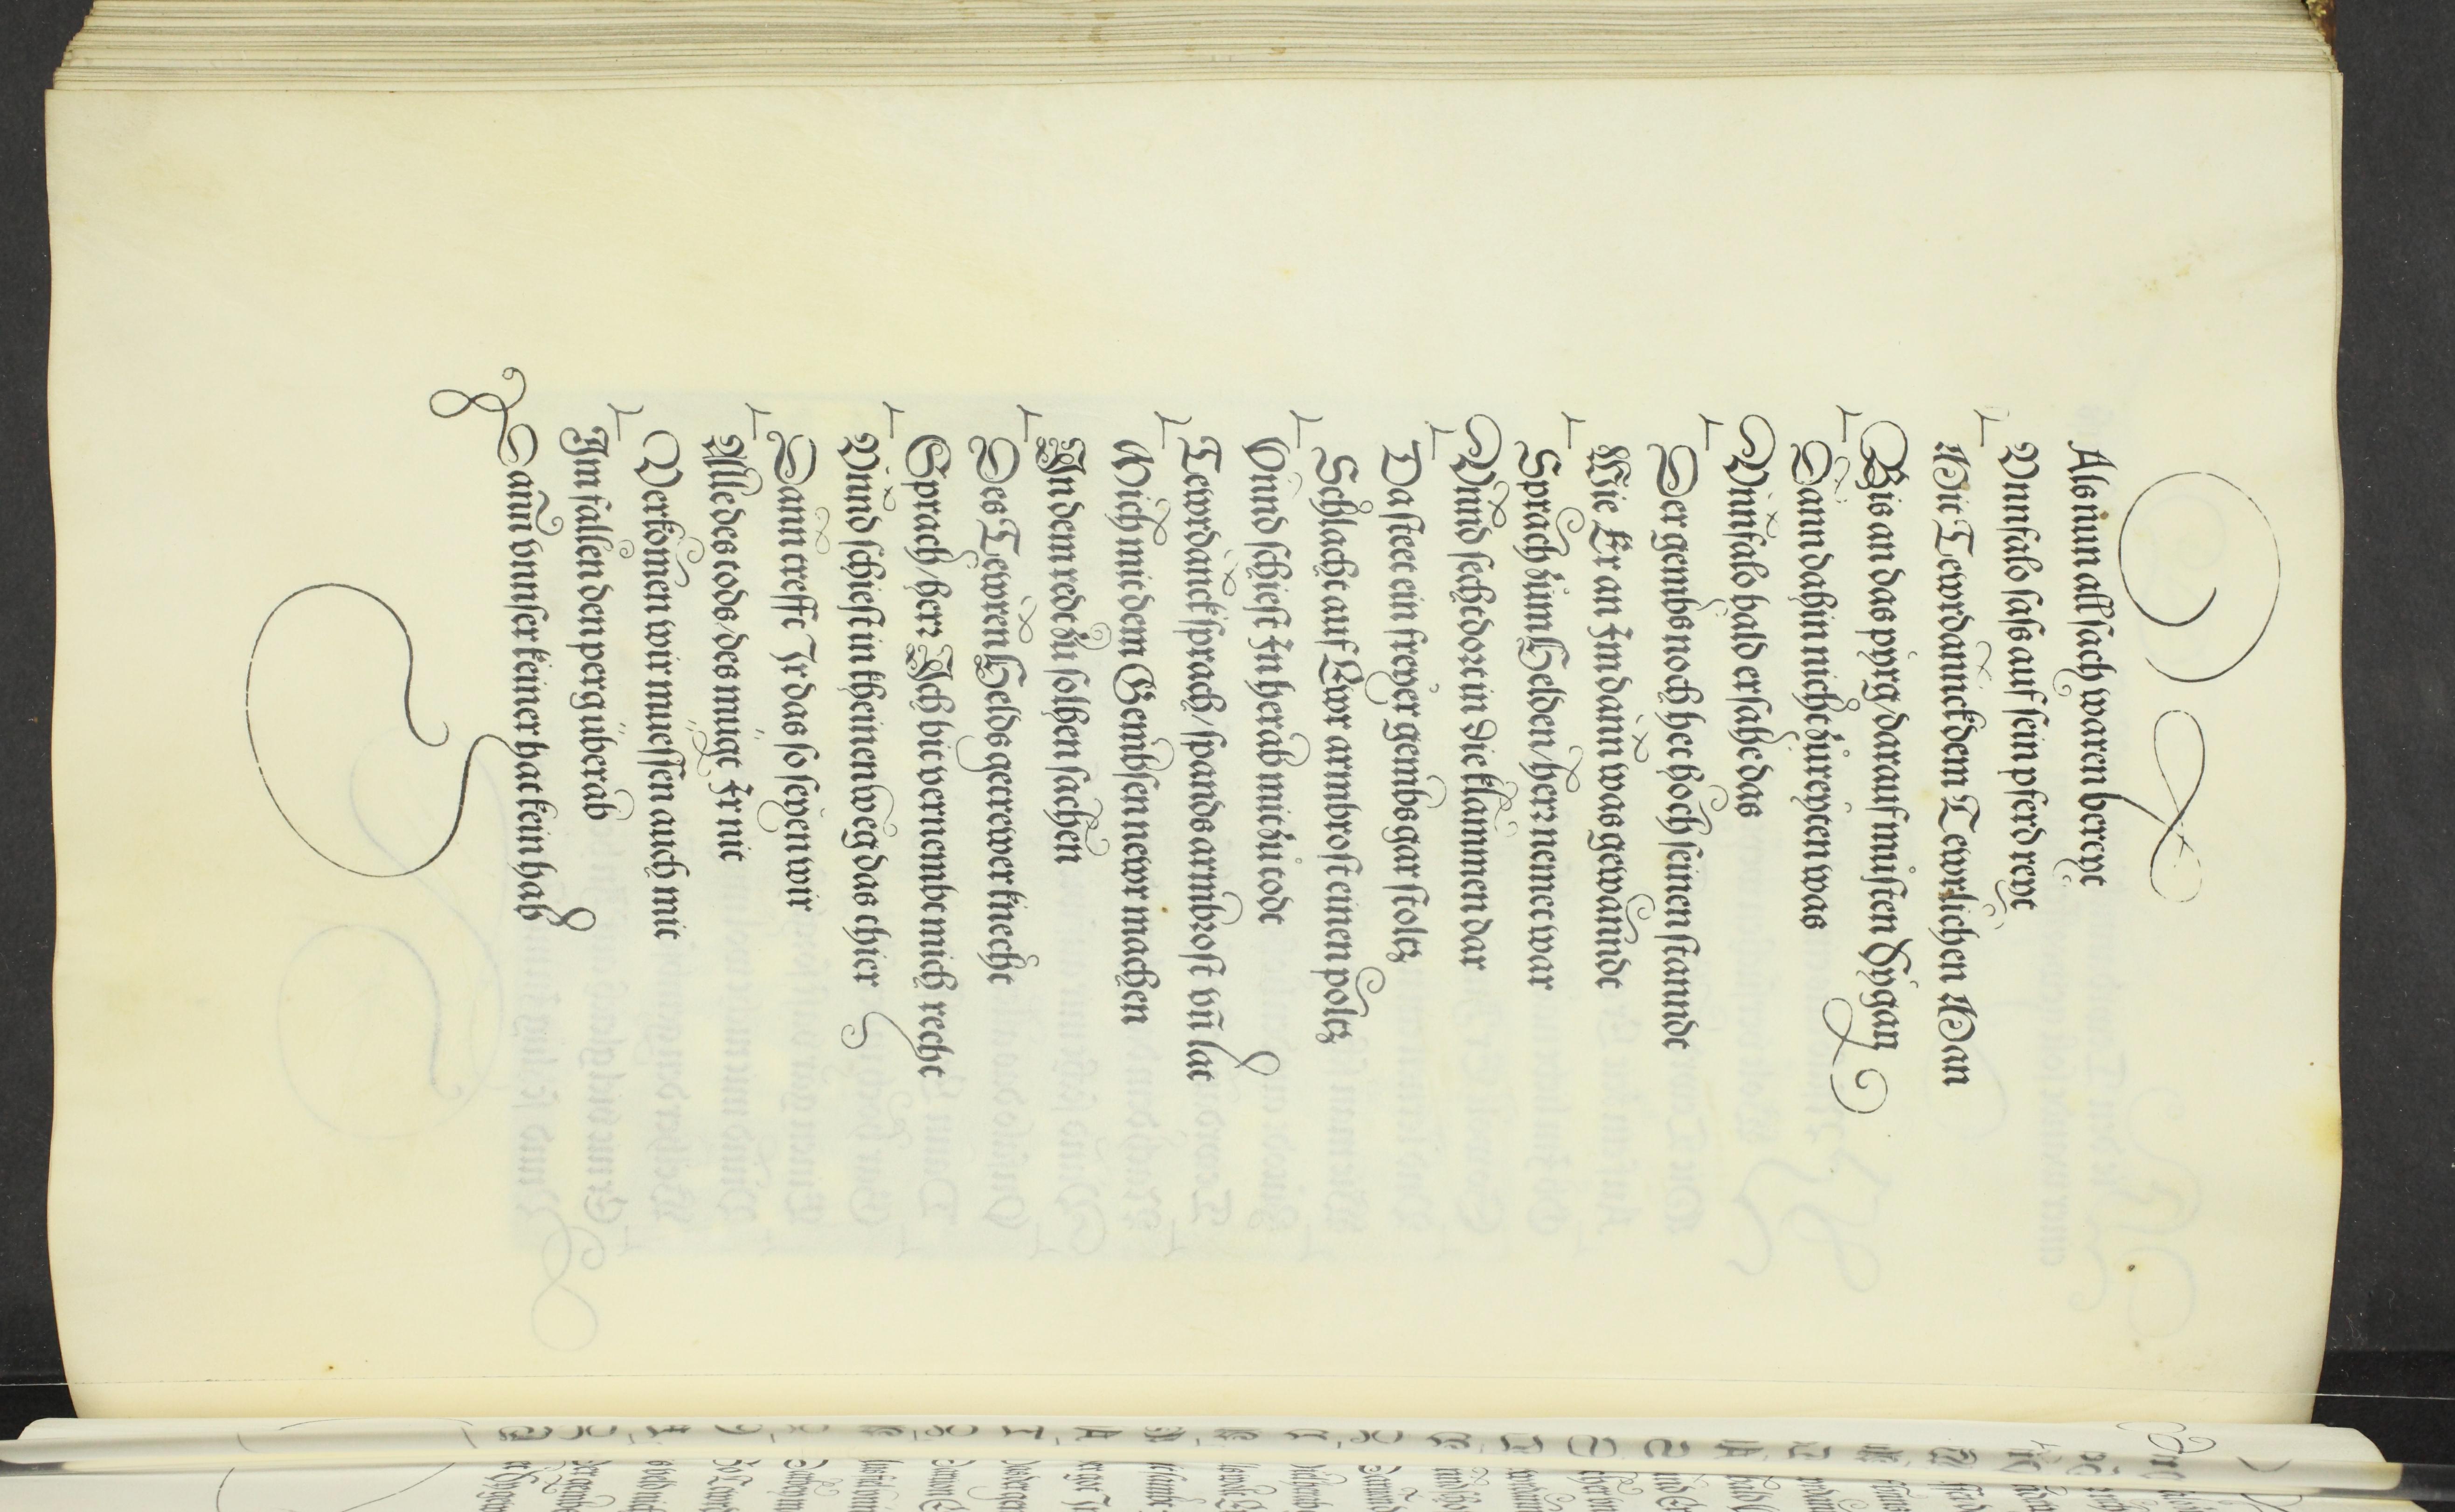 Als nun all sach waren bereyt
Vnnfalo sass auf sein pferd reyt
Mit Tewrdannck dem Tewrlichen Man
Bis an das pyrg/darauf musten Sy gan
Dann dahin nicht zureyten was
Vnnfalo bald ersahe das
Der gembs noch het hoch seinen stanndt
Wie Er an Im dann was gewanndt
Sprach zum Helden/herr nemet war
Vnnd secht dort in die klammen dar
Da stet ein freyer gembs gar stoltz
Schlacht auf Ewr armbrost einen poltz
Vnnd schiest In herab mit zu todt
Tewrdanck sprach/spands armbrost vn̄ lat
Mich mit dem Gembsen newr machen
In dem redt zu solhen sachen
Des Tewren Helds getrewer knecht
Sprach/herr Ich bit vernembt mich recht
Vnnd schiest in kheinen weg das thier
Dann trefft Ir das so seyen wir
Alle des tods/des mügt Ir nit
Verkomen wir muessen auch mit
Im fallen den perg überab
Dañ vnnser keiner hat kein hab